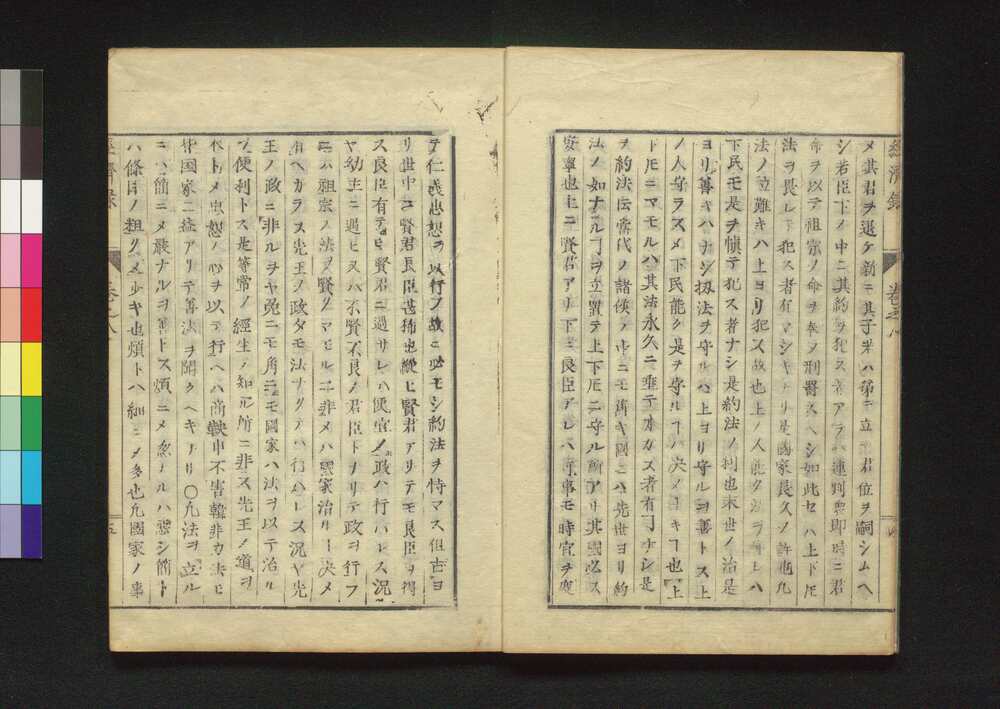 メ其君ヲ退ケ新ニ其子ボハ第ニ立君位ヲ嗣シムヘ
シ若臣下ノ中ニ其約ヲ犯ス者アラハ連判即時ニ君
命ヲ以テ祖宗ノ命ヲ奉ヲ刑罸スヘシ如此セハ上下尼
法ヲ畏レテ犯ス者有マシキナリ是國家長久ノ許也凡
法ノ立難キハ上ヨリ犯ス故也上ノ人能ク法ヲ守レハ
下民モ是ヲ慎テ犯ス者ナシ是約法ノ利也末世ノ治是
ヨリ善キハナシ扨法ヲ守ルハ上ヨリ守ルヲ善トス上
ノ人守ラスメ下民能ク是ヲ守ルヿハ决メヨキヿ也上
下尼ニマモルハ其法永久ニ垂テオカス者有ヿナシ是
ヲ約法伝當代ノ諸侯ノ中ニモ舊キ國ニハ先世ヨリ約
法ノ如ナルヿヲ立置テ上下尼ニ守ル所アリ其國必ス
安寧也上ニ賢君アリ下ニ良臣アレハ何事モ時宜ヲ度
經濟録
卷之八
四
テ仁義忠恕ヲ以行フ故ニ必モシ約法ヲ恃マス但古ヨ
リ世中ニ賢君良臣甚稀也縱ヒ賢君アリテモ良臣ヲ得
ス良臣有テモ賢君ニ遇サレハ便宜ノ政ハ行ハレス况
ヤ幼主ニ遇ヒ又ハ不賢不良ノ君臣トナリテ政ヲ行フ
ニハ祖宗ノ法ヲ賢クマモルニ非メハ國家治ルヿ决メ
有ヘカラス先王ノ政タモ法ナクテハ行ハレス况ヤ先
王ノ政ニ非ルヲヤ兎ニモ角ニモ國家ハ法ヲ以テ治ル
ヲ便利トス是等常ノ經生ノ知所ニ非ス先王ノ道ヲ
本トメ忠恕ノ心ヲ以テ行ヘハ商鞅申不害韓非カ法モ
皆国家ニ益アリテ善法ヲ闢クヘキナリ〇凡法ヲ立ル
ニハ簡ニメ嚴ナルヲ善トス煩ニメ緩ナルハ惡シ簡ト
ハ條目ノ粗クメ少キ也煩トハ細ニメ多也凡國家ノ事
經濟録
卷之八
五